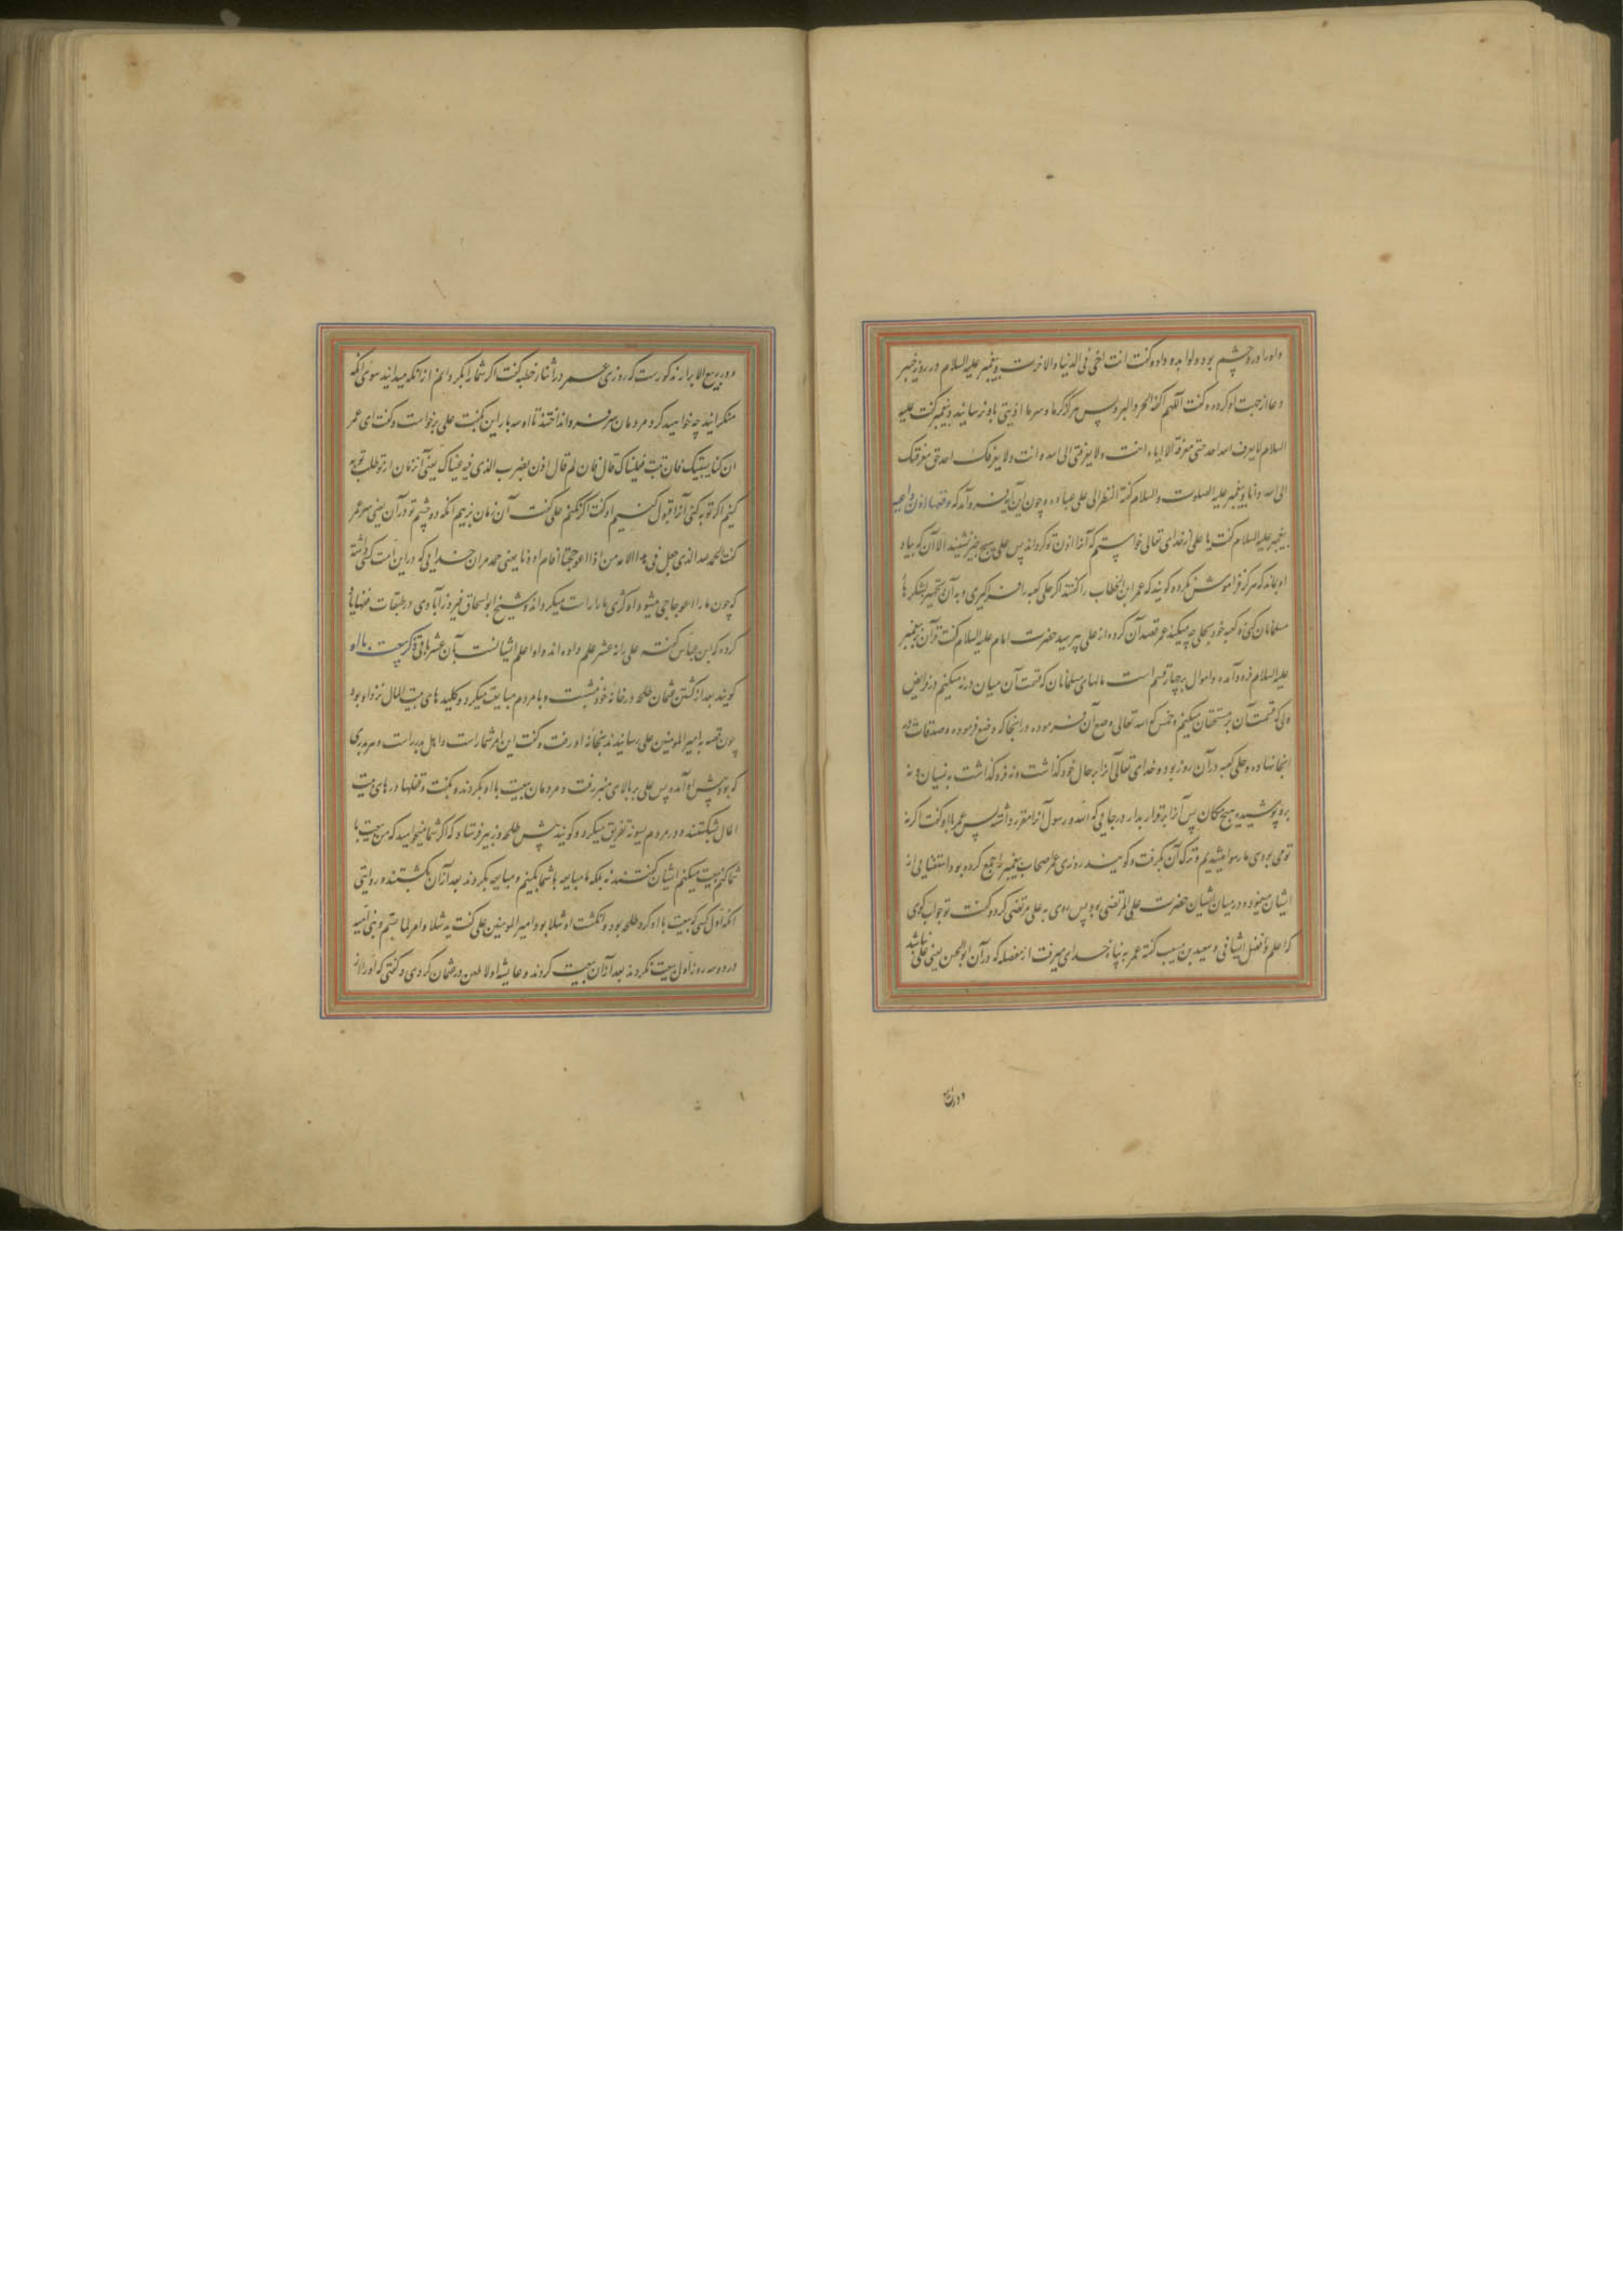 و او را درد چشم بود و لوا بدو داد و گفت انت اخی فی الدنیا والاخرت و پیغمبر علیه السلام در روز خیبر
دعا از جهت او کرده و گفت اللهم اکفه الحر والبرد پس هرگز گرما و سرما اذیتی باو نرسانید و پیغمبر گفت علیه
السلام لایعرف الله احد حتی معرفة الا انا و انت ولا یعرفنی الا الله و انت ولا یعرفک احد حق معرفتک
الا الله و انا و پیغمبر علیه الصلوت والسلام گفته النظر الی علی عباده و چون این آیه فرو آمد که وتعیها اذن واعیه
پیغمبر علیه السلام گفت یا علی از خدای تعالی خواستم که آنرا اذن تو گرداند پس علی هیچ چیز نشنید الا آن که بیاد
او بماند که هرگز فراموش نکرده گویند که عمر ابن الخطاب را گفتند اگر حلی کعبه را فراگیری و به آن تجهیز لشکرها
مسلمانان کنی و کعبه خود بحلی چه میکند عمر قصد آن کرد و از علی پرسید حضرت امام علیه السلام گفت قرآن بر پیغمبر
علیه السلام فرو آمد و اموال بر چهار قسم است مالهای مسلمانان که قسمت آن میان ورثه میکنیم در فرایض
و فی که قسمت آن بر مستحقان میکنیم و خمس که الله تعالی وضع آن فرموده در انجا که وضع فرموده و صدقات که در
انجا نهاده و حلی کعبه در آن روز بود و خدای تعالی آنرا بر حال خود گذاشت و نه فرو گذاشت به نسیان و نه
برو پوشیده هیچ مکان پس آنرا برقرار بدار در جایی که الله و رسول آنرا مقرر داشته پس عمر باو گفت اگر نه
تو می بودی ما رسوا میشدیم و ترک آن بگرفت و گویند روزی عمر اصحاب پیغمبر را جمع کرده بود و استفتایی از
ایشان مینمود و در میان ایشان حضرت علی المرتضی بود پس روی به علی مرتضی کرد و گفت تو جواب گوی
که اعلم و افضل ایشانی و سعید بن مسیب گفته عمر به پناه خدای میرفت از معضله که در آن ابوالحسن یعنی علی نباشد
و در ربیع
و در ربیع الابرار مذکورست که روزی عمر در اثنای خطبه گفت اگر شما را بگردانم از آنکه میدانید سوی آنکه
منکرانید چه خواهید کرد مردمان سر فرو انداختند تا او سه بار این بگفت علی برخواست و گفت ای عمر
اذن کنا نستتیبک فان تبت قبلناک قال فان لم قال اذن یضرب الذی فیه عیناک یعنی آن زمان از تو طلب توبه
کنیم اگر توبه کنی آنرا قبول کنیم او گفت اگر نکنم علی گفت آن زمان بزنیم آنکه دو چشم تو در آن یعنی سر عمر
گفت الحمد لله الذی جعل فی هذه الامه من اذا اعوججنا اقام اودنا یعنی حمد مر آن خدایی که در این امت کسی داشته
که چون ما را اعوجاجی میشود او کژی ما را راست میگرداند و شیخ ابو اسحاق فیروزآبادی در طبقات فقها یاد
کرده که ابن عباس گفته علی را نه عشر علم داده اند و او اعلم ایشانست بآن عشر باقی ذکر بیعت با او
گویند بعد از کشتن عثمان طلحه در خانه خود نشست و با مردم مبایعت میکرد و کلید های بیت المال نزد او بود
چون قصه به امیر المومنین علی رسانیدند بخانه او رفت و گفت این امر شما راست و اهل بدر راست و هر بدری
که بود پیش او آمد پس علی بر بالای منبر رفت و مردمان بیعت با او بکردند و بگفت و قفلها در های بیت
المال بشکستند و در مردم بسویه تفریق میکرد و گویند پیش طلحه و زبیر فرستاد که اگر شما میخواهید که من بیعت با
شما کنم بیعت میکنم ایشان گفتند نه بلکه ما مبایعه با شما بکنیم و مبایعه بکردند بعد از آن بشکستند و روایتی
آنکه اول کسی که بیعت با او کرد طلحه بود و انگشت او شلا بود امیر المومنین علی گفت ید شلا و امر لما یتم و بنی امیه
در دو سه روز اول بیعت نکردند بعد از آن بیعت کردند و عایشه اولا طعن در عثمان کردی و گفتی که او را از